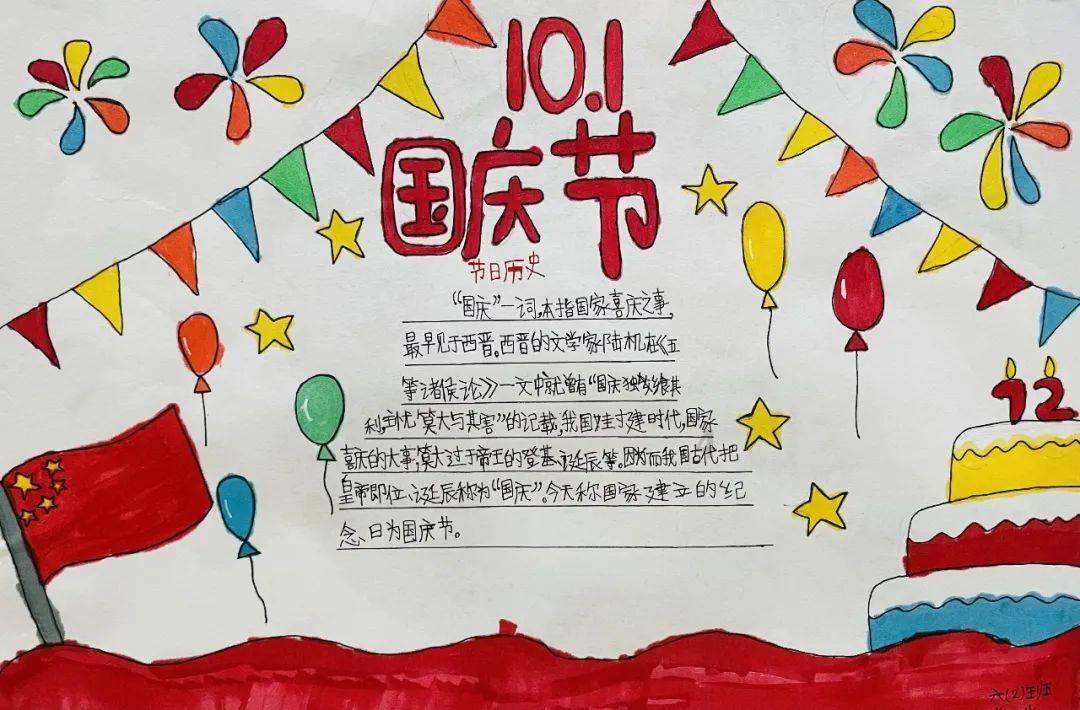 10.1
国庆节
节日历史
“国庆”一词,本指国家喜庆之事,
最早见于西晋。西晋的文学家陆机在《五
等诸侯论》一文中就曾有“国庆独飨其
利,主忧莫大与其害”的记载,我国封建时代,国家
喜庆的大事,莫大过于帝王的登基、诞辰等。因而我国古代把
皇帝即位、诞辰称为“国庆”。今天称国家建立的纪
念日为国庆节。
72
六(2)班